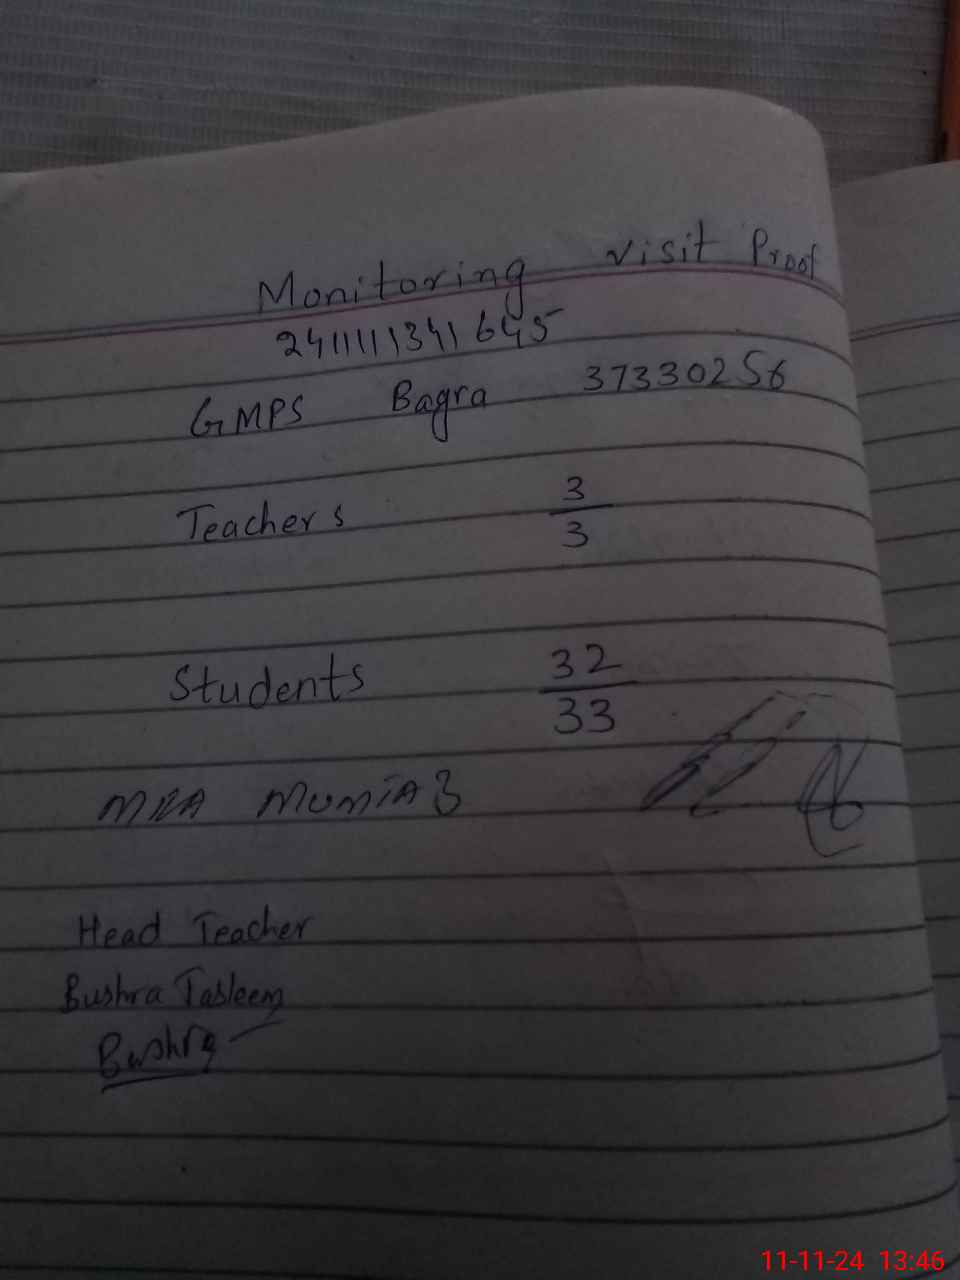 Monitoring visit Proof
241111341645
GMPS Bagra 37330256
Teachers 3/3
Students 32/33
Head Teacher
Bushra Tasleem
Bushra
11-11-24 13:46